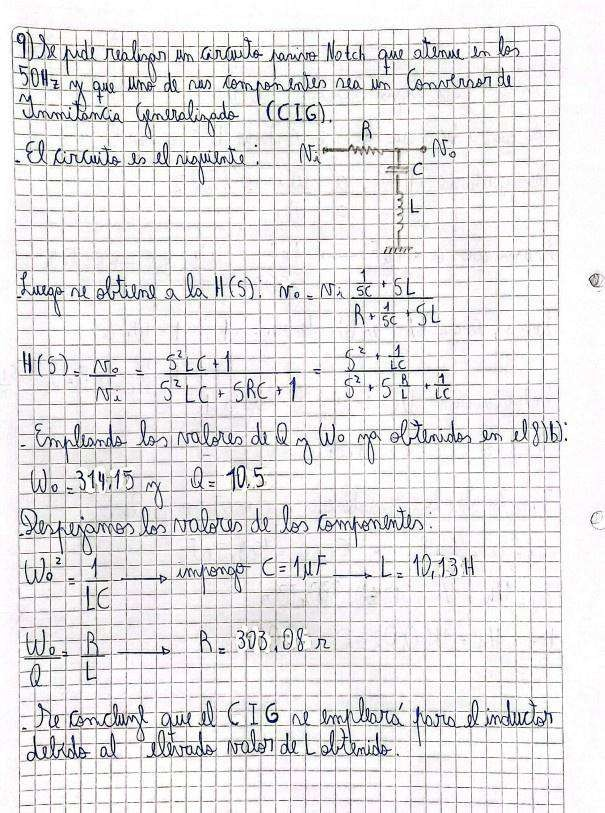 9) Se pide realizar un circuito pasivo Notch que atenue en los
50Hz y que uno de sus componentes sea un Conversor de
Inmitancia Generalizado (CIG).
- El circuito es el siguiente:
R
Vi
Vo
C
L
- Luego se obtiene a la H(S): Vo = Vi (1/SC + SL) / (R + 1/SC + SL)
H(S) = Vo/Vi = (S²LC + 1) / (S²LC + SRC + 1) = (S² + 1/LC) / (S² + S R/L + 1/LC)
- Empleando los valores de Q y Wo ya obtenidos en el 8)b):
Wo = 314.15 y Q = 10.5
- Despejamos los valores de los componentes:
Wo² = 1/LC → impongo C = 1μF → L = 10,13 H
Wo/Q = R/L → R = 303.08 Ω
- Se concluye que el CIG se empleará para el inductor
debido al elevado valor de L obtenido.